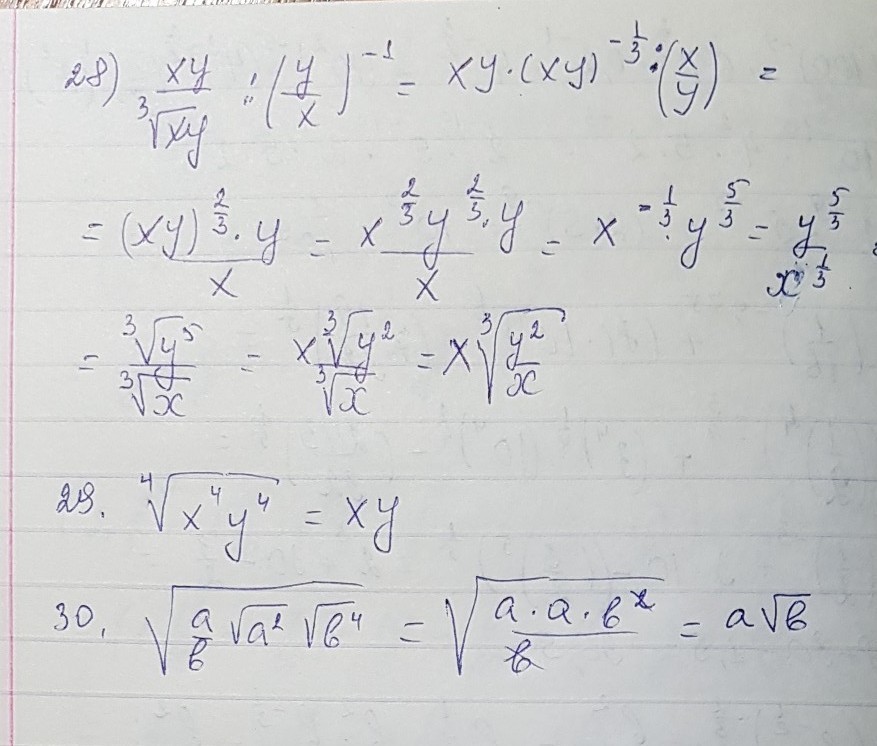 28) xy/∛xy : (y/x)^-1 = xy·(xy)^-1/3 : (x/y) =
= (xy)^2/3 · y/x = x^2/3 y^2/3 · y/x = x^-1/3 · y^5/3 = y^5/3/x^1/3 =
= ∛y^5/∛x = x∛y^2/∛x = x∛(y^2/x)
29. ∜(x^4 y^4) = xy
30. √(a/b √a^2 √b^4) = √(a·a·b^2/b) = a√b